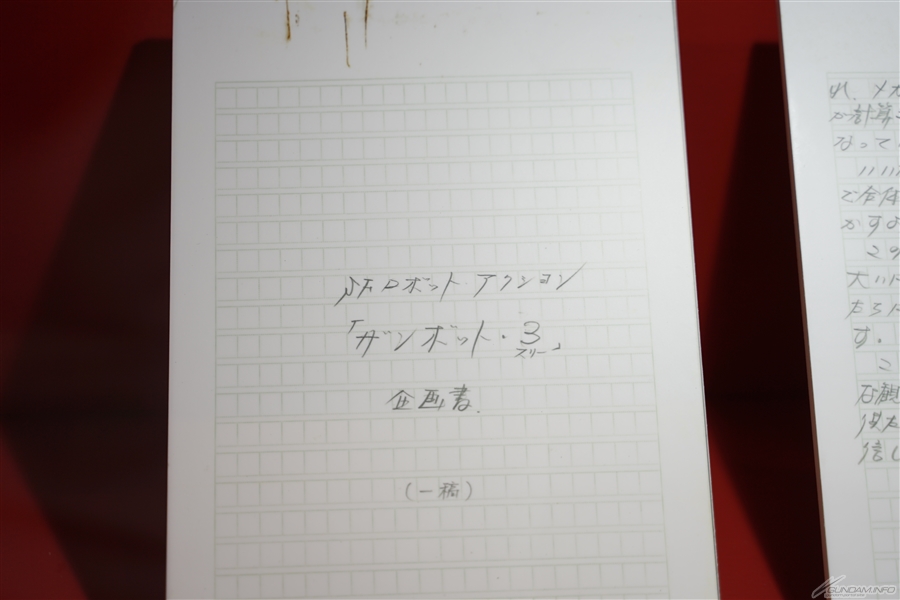 SFロボットアクション
「ザンボット・3」
スリー
企画書.
(一稿)
れ、メカ
か計算
なって
で合体
かすよ
この
大い
たろ
す。
こ
信し
GUNDAM.INFO